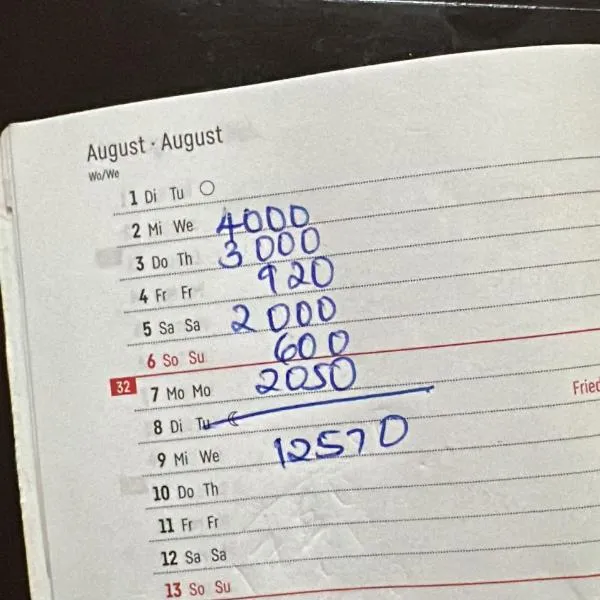 August · August
Wo/We
1 Di Tu
2 Mi We 4000
3 Do Th 3000
4 Fr Fr 920
5 Sa Sa 2000
6 So Su 600
32 7 Mo Mo 2050
8 Di Tu
Fried
9 Mi We 12570
10 Do Th
11 Fr Fr
12 Sa Sa
13 So Su